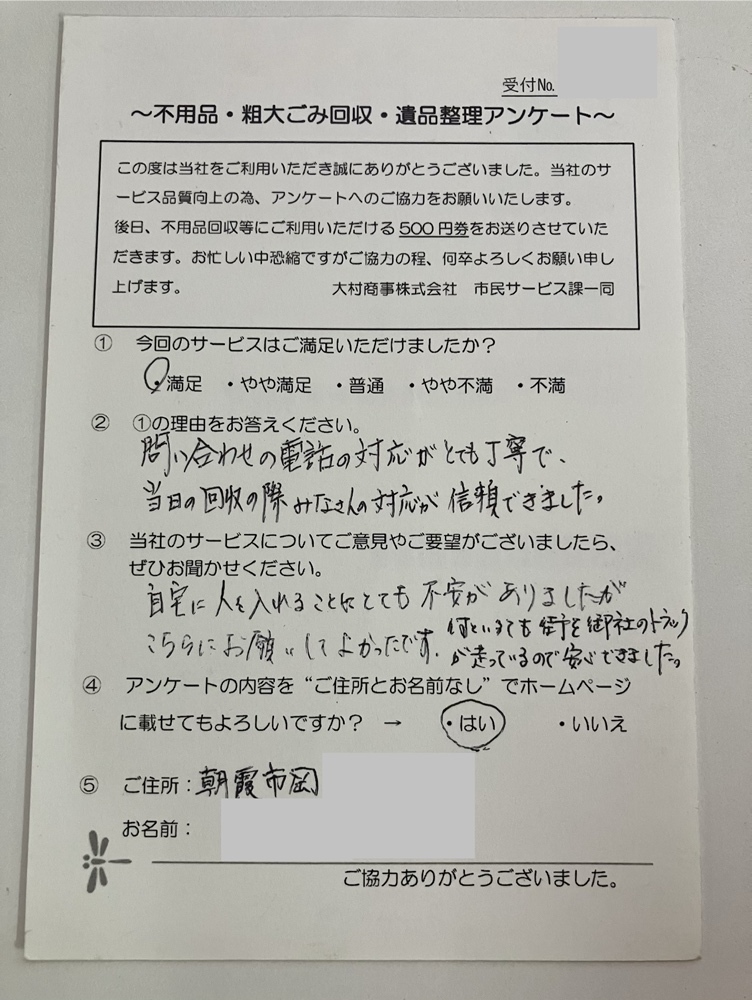 受付No.
～不用品・粗大ごみ回収・遺品整理アンケート～
この度は当社をご利用いただき誠にありがとうございました。当社のサ
ービス品質向上の為、アンケートへのご協力をお願いいたします。
後日、不用品回収等にご利用いただける500円券をお送りさせていた
だきます。お忙しい中恐縮ですがご協力の程、何卒よろしくお願い申し
上げます。　大村商事株式会社　市民サービス課一同
① 今回のサービスはご満足いただけましたか？
・満足 ・やや満足 ・普通 ・やや不満 ・不満
② ①の理由をお答えください。
問い合わせの電話の対応がとても丁寧で、
当日の回収の際みなさんの対応が信頼できました。
③ 当社のサービスについてご意見やご要望がございましたら、
ぜひお聞かせください。
自宅に人を入れることにとても不安がありましたが
こちらにお願いしてよかったです。何といっても街を御社のトラック
が走っているので安心できました。
④ アンケートの内容を“ご住所とお名前なし”でホームページ
に載せてもよろしいですか？ → ・はい ・いいえ
⑤ ご住所：朝霞市岡
お名前：
ご協力ありがとうございました。